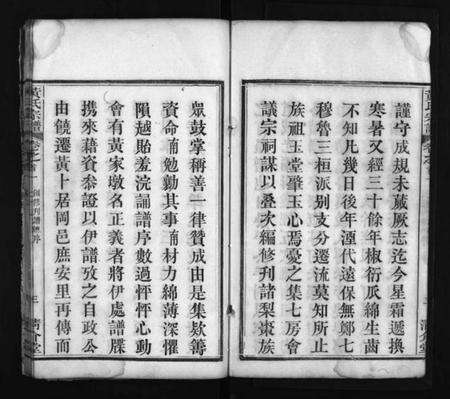 謹守成規未蕆厥志迄今星霜遞換
寒暑又經三十餘年椒衍瓜綿生齒
不知凡幾日後年湮代遠保無鄭七
穆魯三桓派別支分遷流莫知所止
族祖玉堂肇玉心焉憂之集七房會
議宗祠謀以疊次編修刊諸梨棗族
眾鼓掌稱善一律贊成由是集欵籌
資命甫勉勷其事甫材力綿薄深懼
隕越貽羞浣誦譜序數過怦怦心動
會有黃家墩名正義者將伊處譜牒
攜來藉資叅證以伊譜攷之自政公
由饒遷黃卜居岡邑庶安里再傳而
黃氏宗譜 卷之首 三